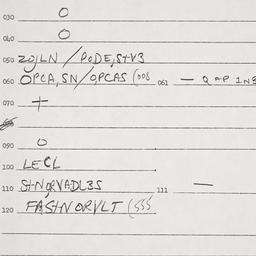 030 O
040 O
050 ZOJLN / PODE, S+V3
060 OPCA, SN/OPCAS (008 061 — Q AP INS
070 +
090 O
100 LECL
110 S+NORVADL3S 111 —
120 FAS+NORVLT (555